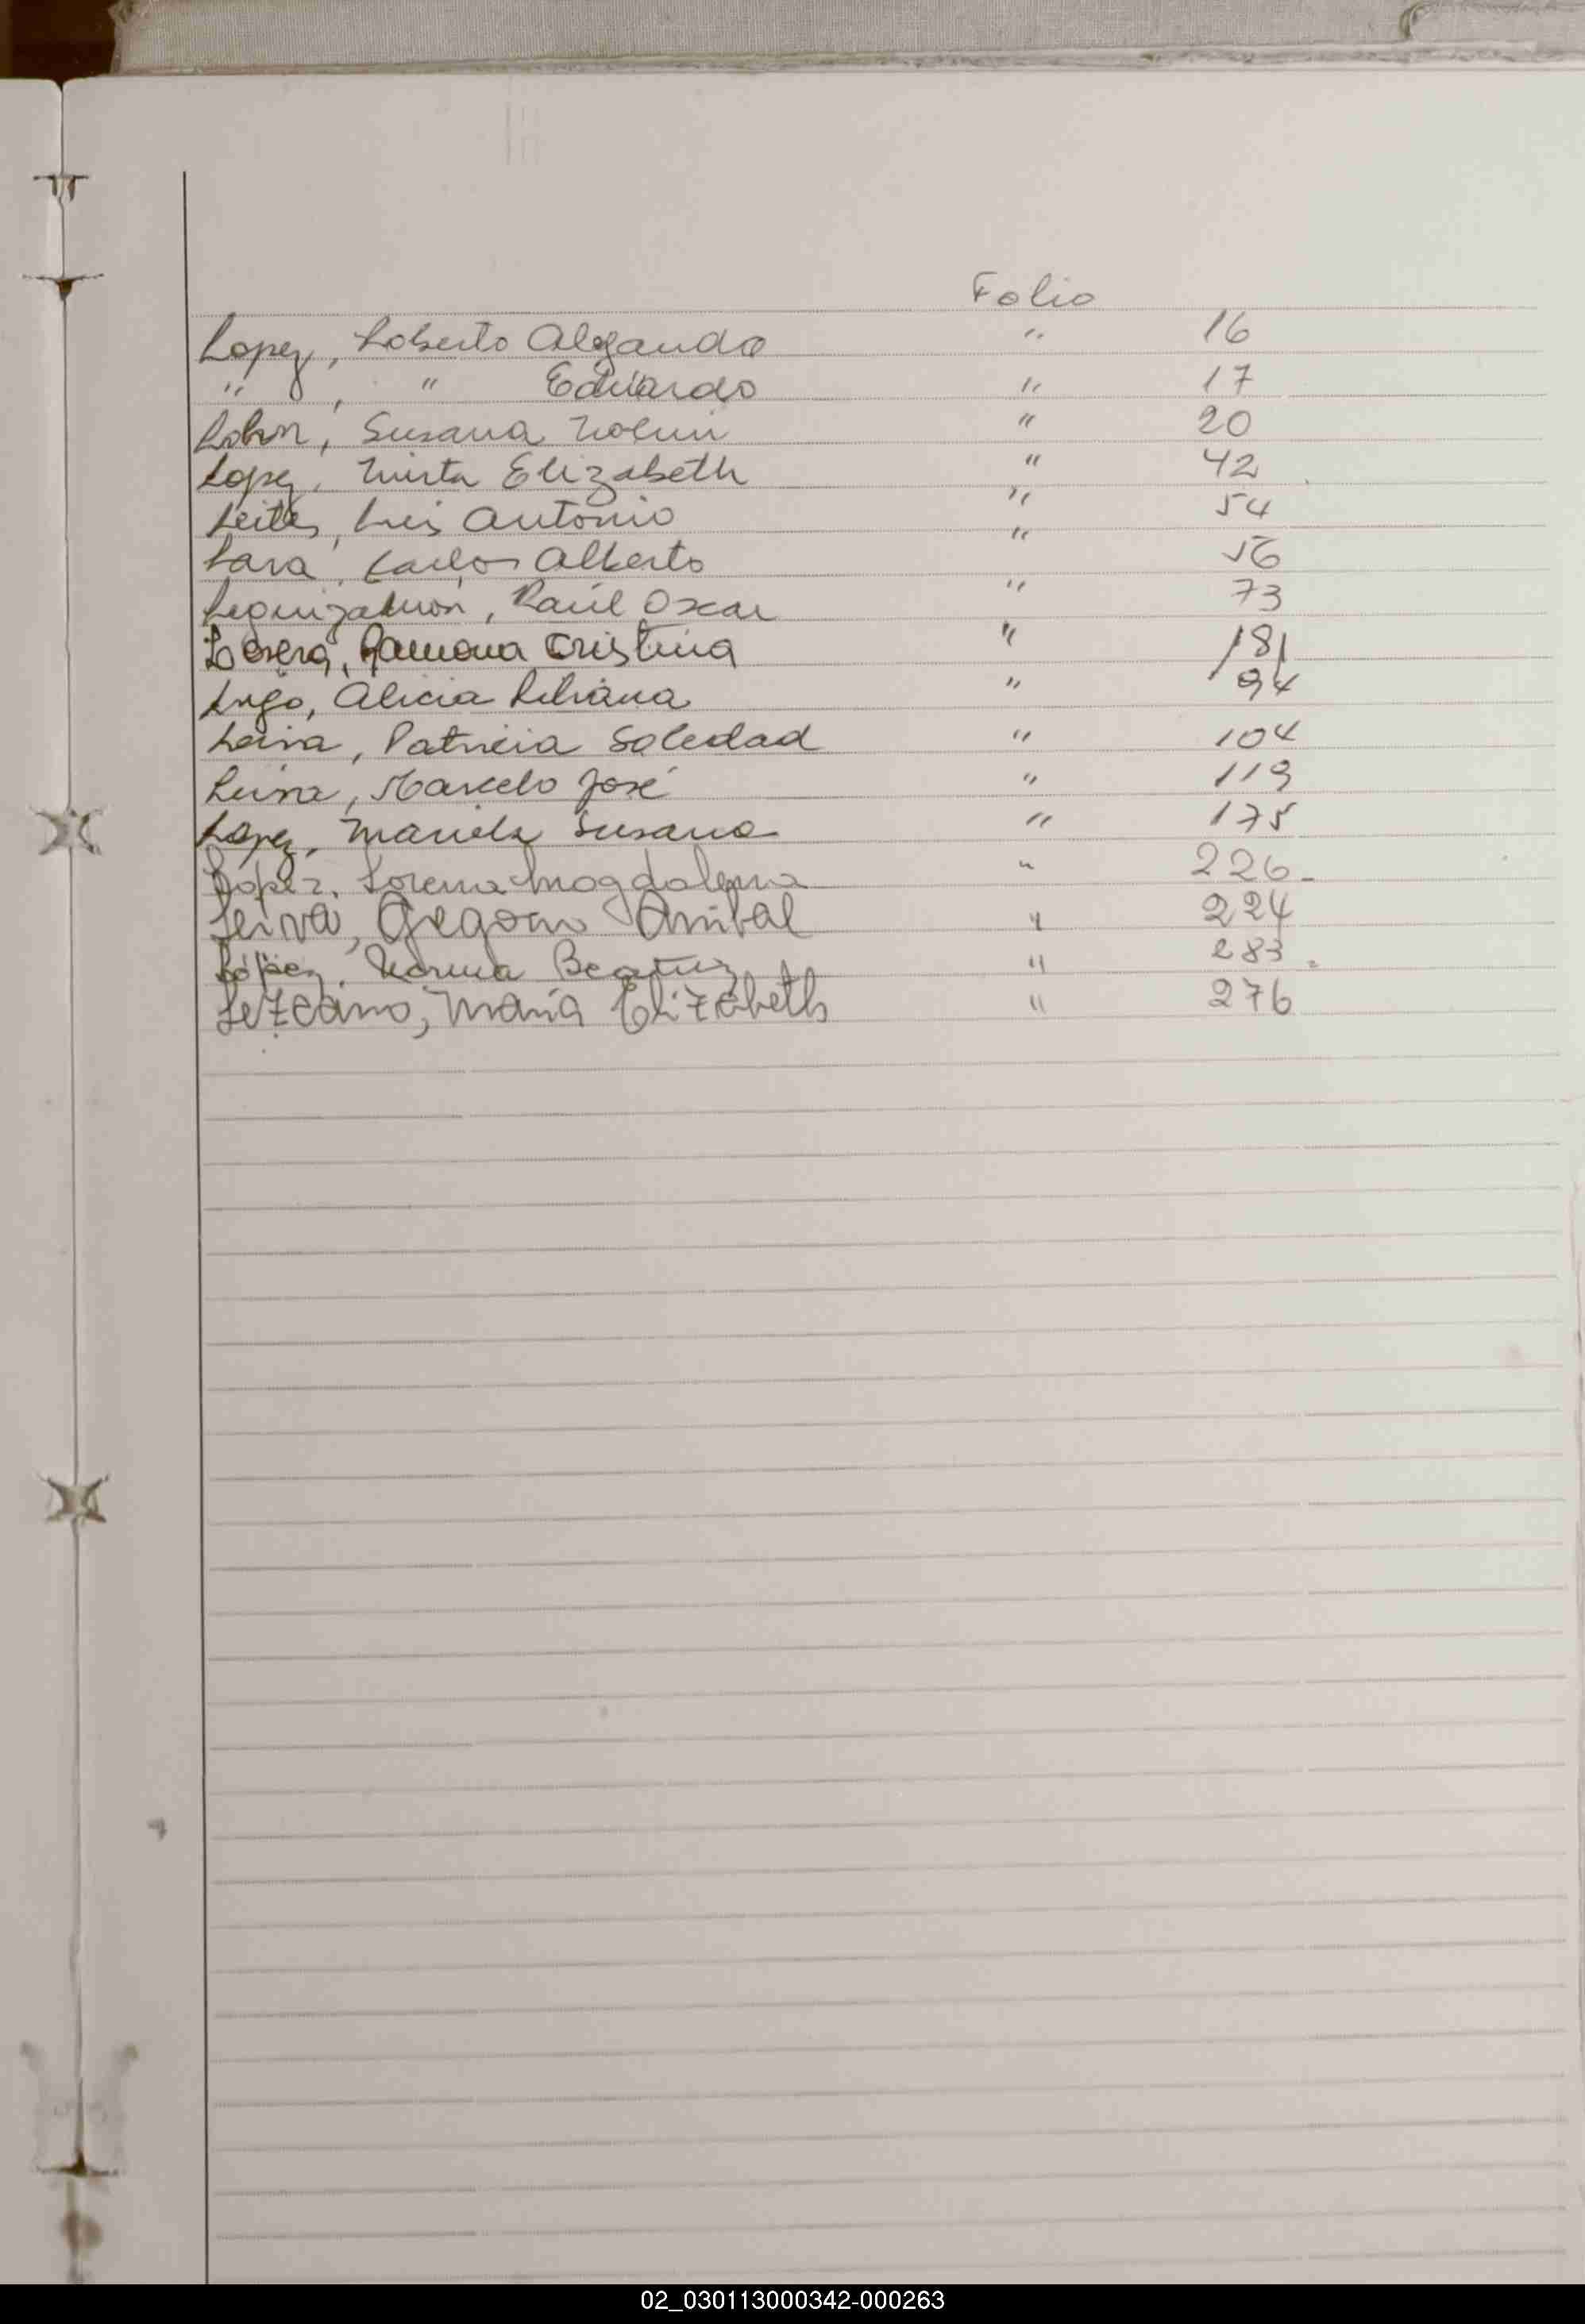 Folio
Lopez, Roberto Alejandro " 16
" , " Eduardo " 17
Susana Noemi " 20
Lopez, Mirta Elizabeth " 42
Leites, Luis Antonio " 54
Lara, Carlos Alberto " 56
Leguizamón, Raúl Oscar " 73
Ramona Cristina " 181
Lugo, Alicia Liliana " 94
Leiva, Patricia Soledad " 104
Leiva, Marcelo José " 119
Lopez, Mariela Susana " 175
López, Lorena Magdalena " 226
Leiva, Gregorio Anibal " 224
López, Norma Beatriz " 283
Lezcano, María Elizabeth " 276
02_030113000342-000263